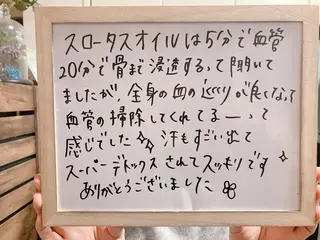 スロータスオイルは5分で血管
20分で骨まで浸透するって聞いて
ましたが、全身の血の巡りが良くなって
血管の掃除してくれてるーって
感じでした✨ 汗もすごい出て
スーパーデトックスされてスッキリです✧
ありがとうございました